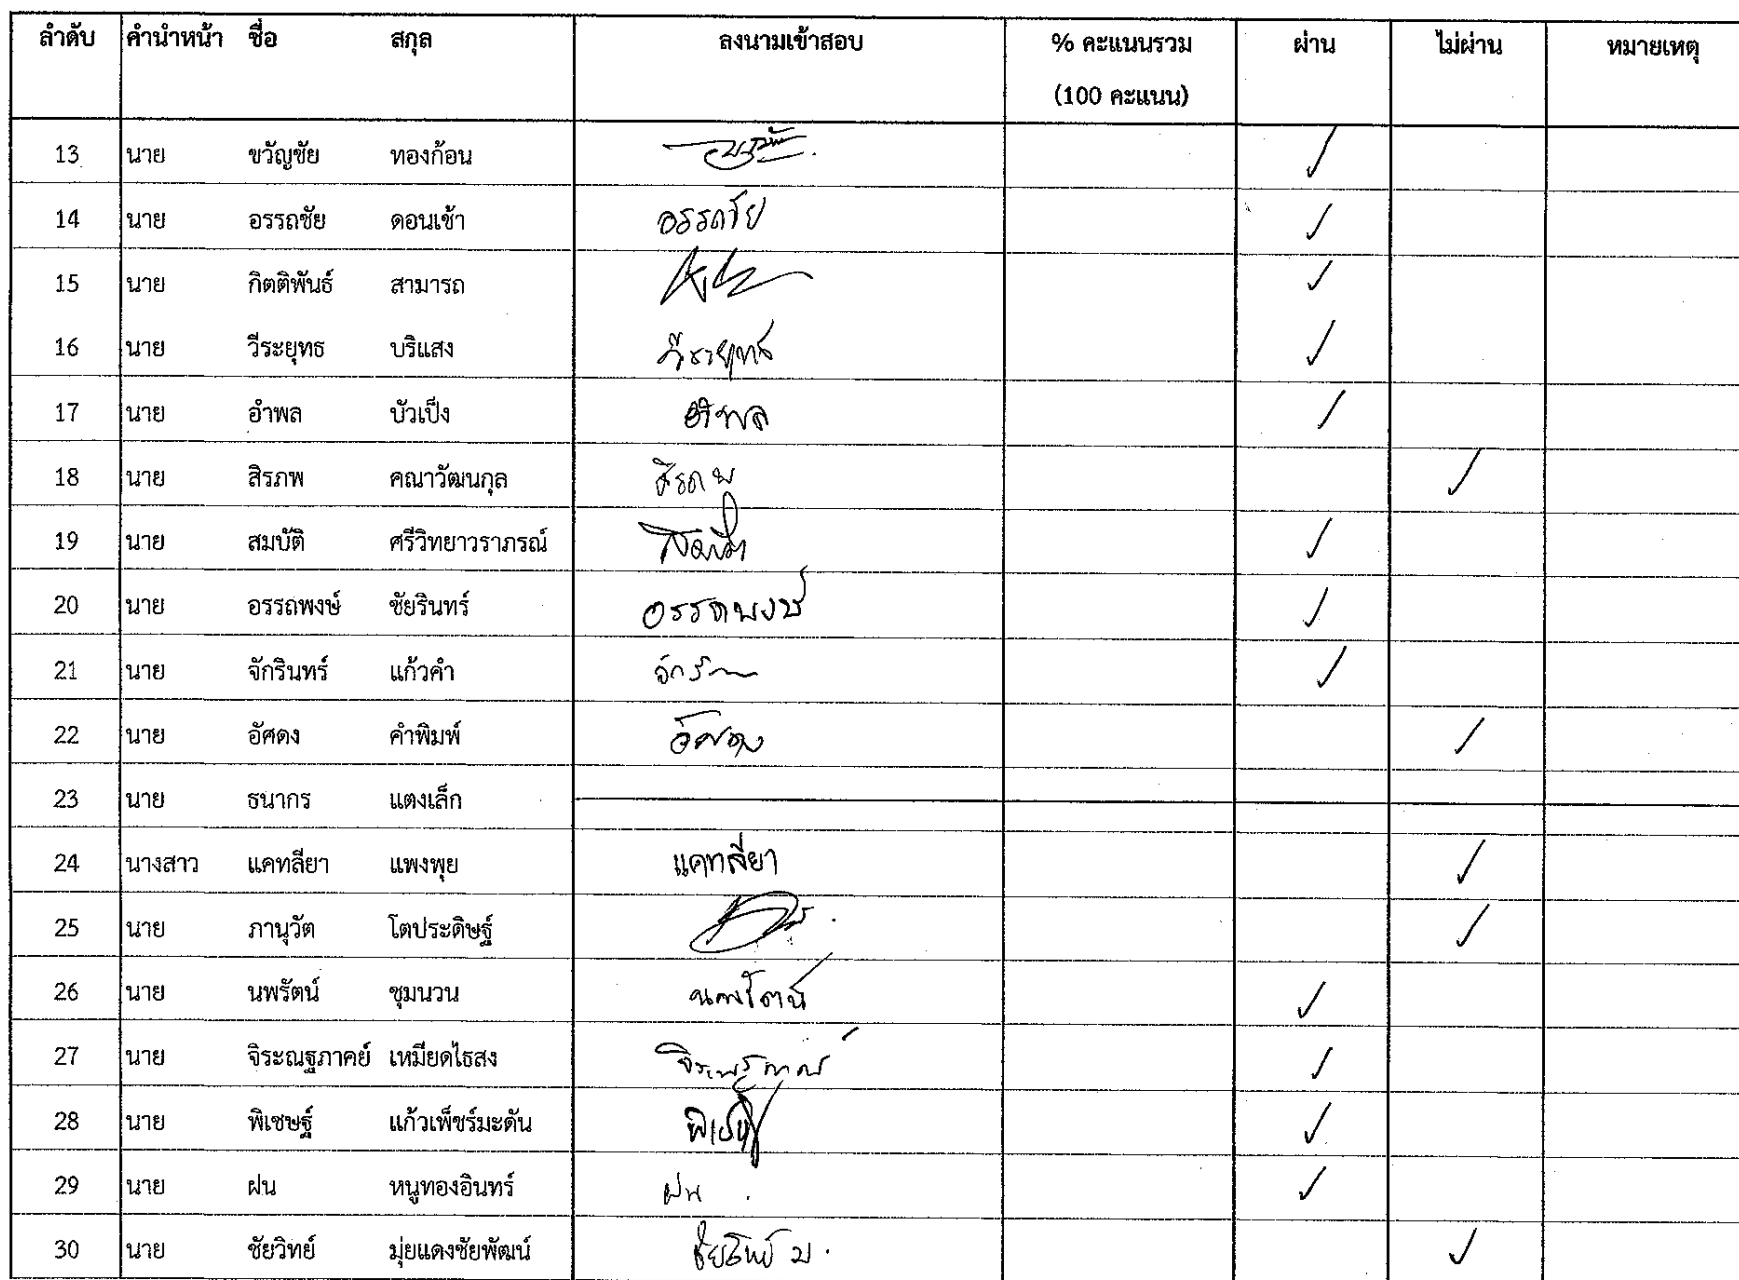 ลำดับ คำนำหน้า ชื่อ สกุล ลงนามเข้าสอบ % คะแนนรวม ผ่าน ไม่ผ่าน หมายเหตุ
(100 คะแนน)
13 นาย ขวัญชัย ทองก้อน
14 นาย อรรถชัย ดอนเช้า อรรถชัย
15 นาย กิตติพันธ์ สามารถ
16 นาย วีระยุทธ บริแสง วีระยุทธ
17 นาย อำพล บัวเป็ง อำพล
18 นาย สิรภพ คณาวัฒนกุล สิรภพ
19 นาย สมบัติ ศรีวิทยาวราภรณ์ สมบัติ
20 นาย อรรถพงษ์ ชัยรินทร์ อรรถพงษ์
21 นาย จักรินทร์ แก้วคำ
22 นาย อัศดง คำพิมพ์ อัศดง
23 นาย ธนากร แตงเล็ก
24 นางสาว แคทลียา แพงพุย แคทลียา
25 นาย ภานุวัต โตประดิษฐ์
26 นาย นพรัตน์ ชุมนวน นพรัตน์
27 นาย จิระณฐภาคย์ เหมียดไธสง
28 นาย พิเชษฐ์ แก้วเพ็ชร์มะดัน พิเชษฐ์
29 นาย ฝน หนูทองอินทร์ ฝน
30 นาย ชัยวิทย์ มุ่ยแดงชัยพัฒน์ ชัยวิทย์ ม.